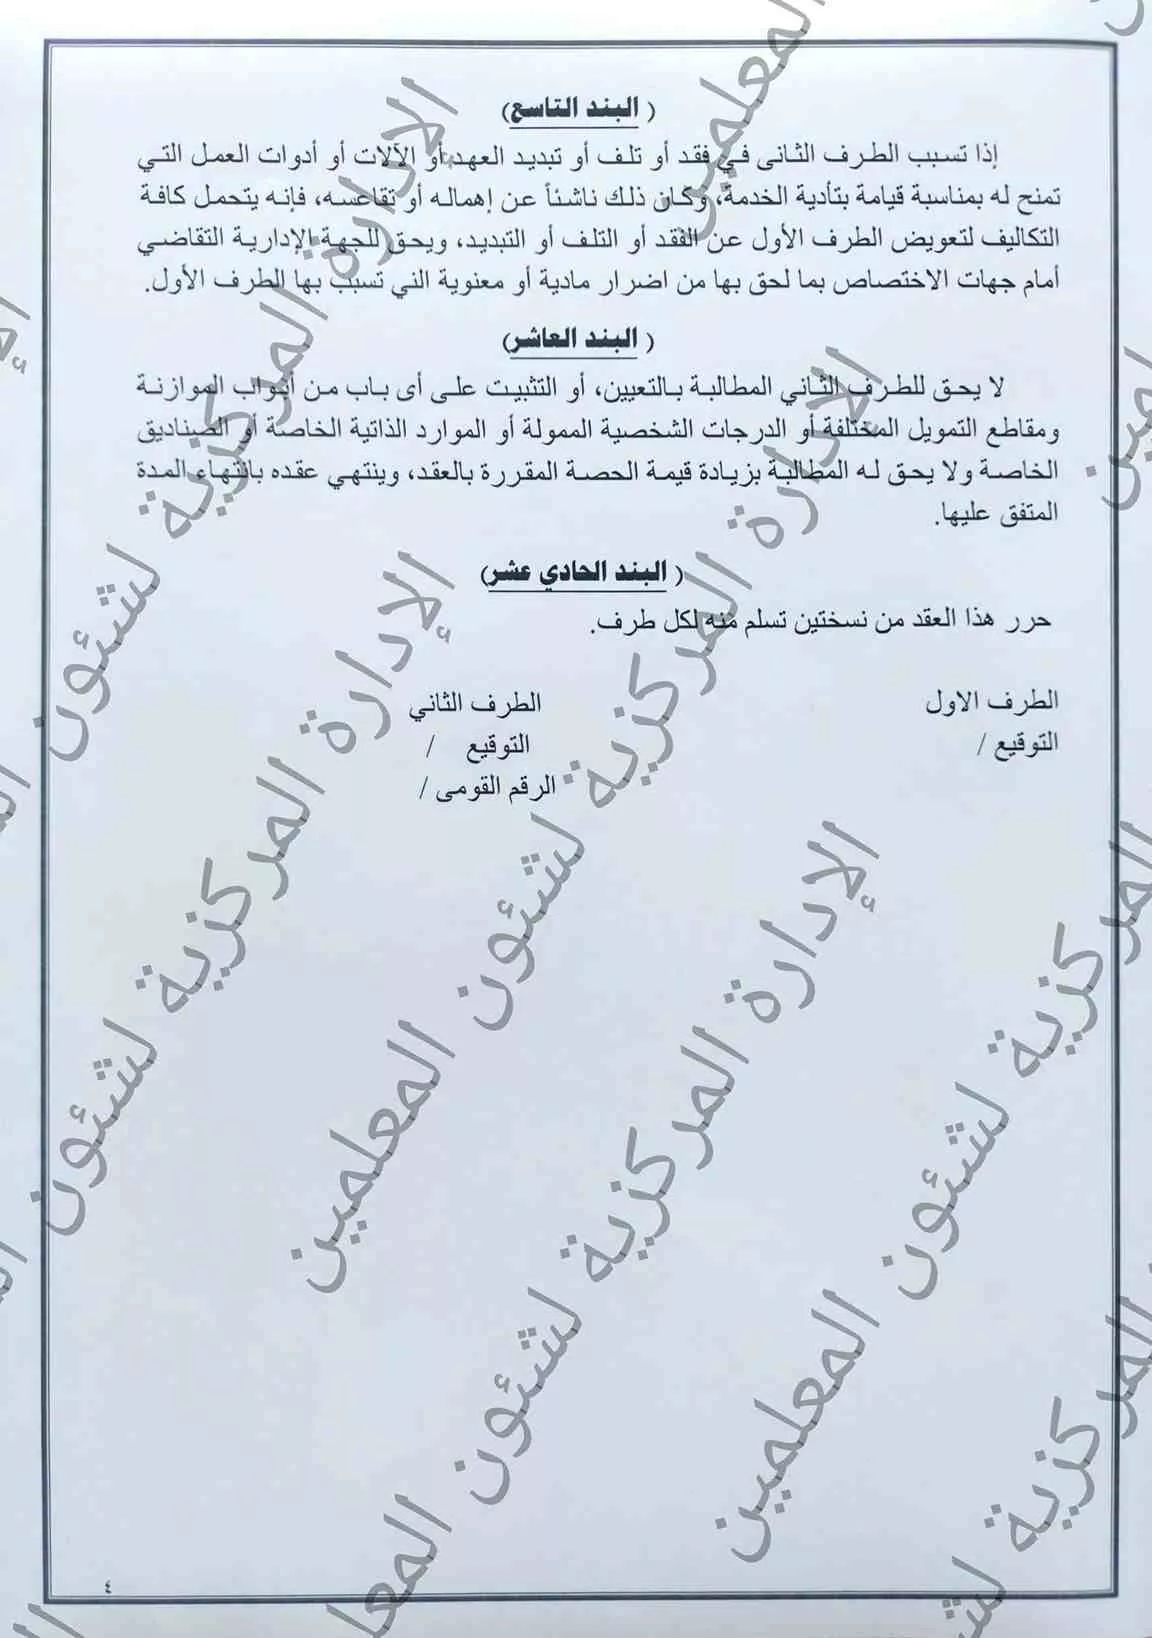 ( البند التاسع)
إذا تسبب الطرف الثانى في فقد أو تلف أو تبديد العهد أو الآلات أو أدوات العمل التي
تمنح له بمناسبة قيامة بتأدية الخدمة، وكان ذلك ناشئاً عن إهماله أو تقاعسه، فإنه يتحمل كافة
التكاليف لتعويض الطرف الأول عن الفقد أو التلف أو التبديد، ويحق للجهة الإدارية التقاضي
أمام جهات الاختصاص بما لحق بها من اضرار مادية أو معنوية التي تسبب بها الطرف الأول.
( البند العاشر)
لا يحق للطرف الثاني المطالبة بالتعيين، أو التثبيت على أى باب من أبواب الموازنة
ومقاطع التمويل المختلفة أو الدرجات الشخصية الممولة أو الموارد الذاتية الخاصة أو الصناديق
الخاصة ولا يحق له المطالبة بزيادة قيمة الحصة المقررة بالعقد، وينتهي عقده بانتهاء المدة
المتفق عليها.
( البند الحادي عشر)
حرر هذا العقد من نسختين تسلم منه لكل طرف.
الطرف الاول
الطرف الثاني
التوقيع /
التوقيع /
الرقم القومى /
٤
الإدارة المركزية لشئون المعلمين